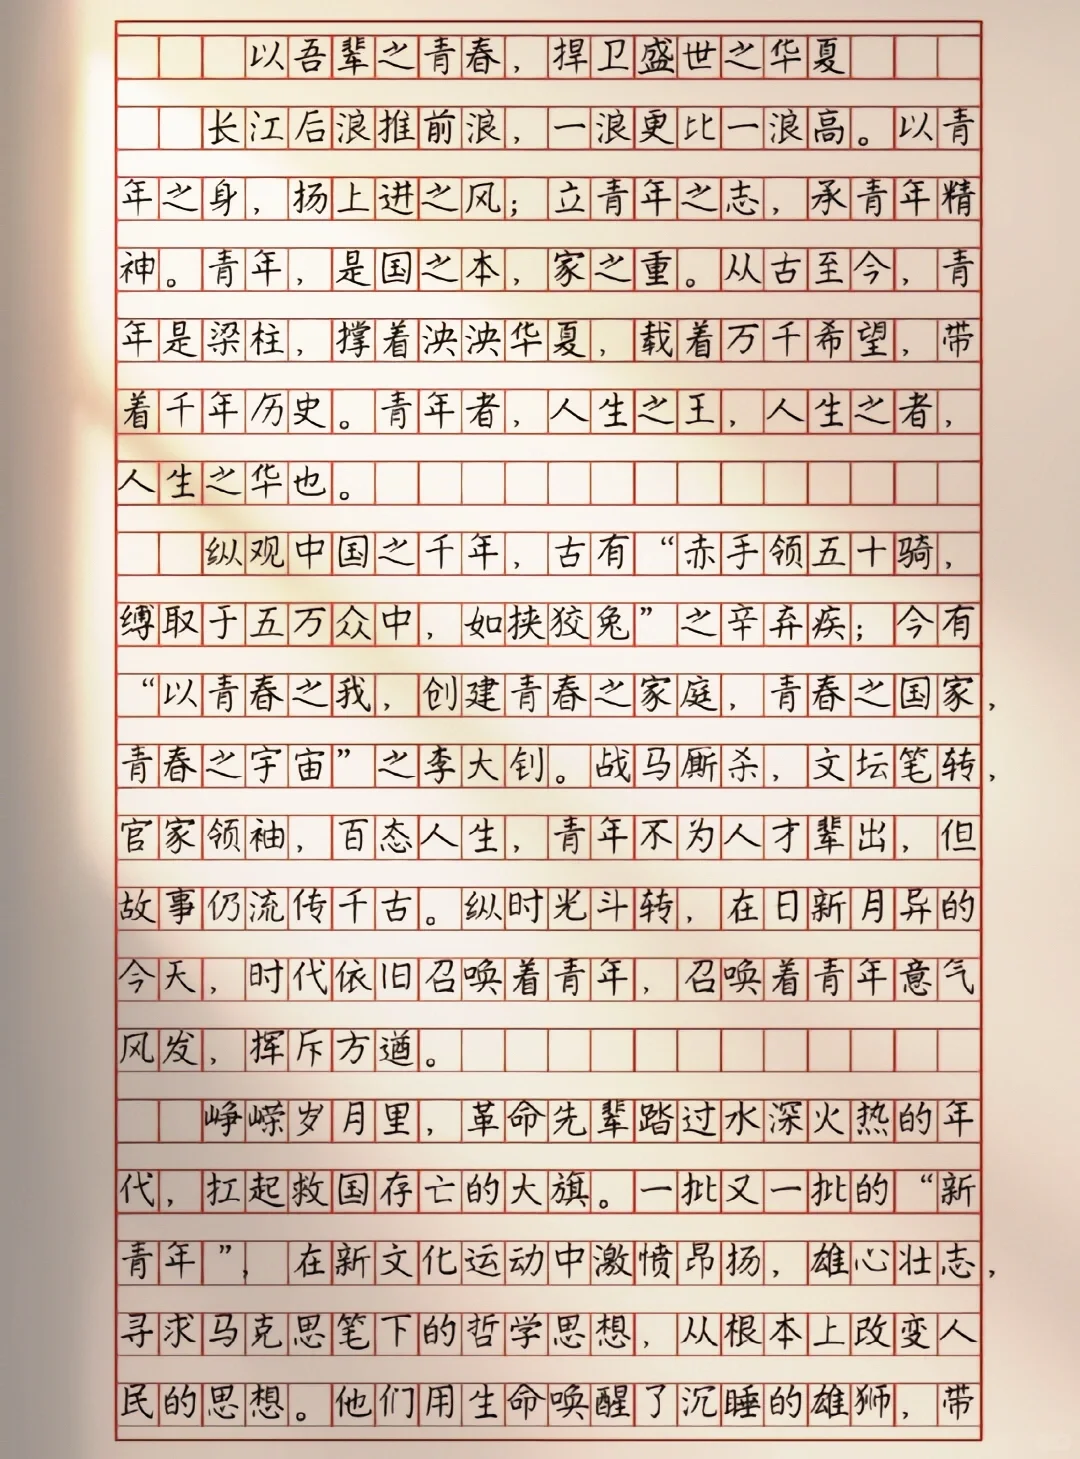 以吾辈之青春，捍卫盛世之华夏
长江后浪推前浪，一浪更比一浪高。以青
年之身，扬上进之风；立青年之志，承青年精
神。青年，是国之本，家之重。从古至今，青
年是梁柱，撑着泱泱华夏，载着万千希望，带
着千年历史。青年者，人生之王，人生之者，
人生之华也。
纵观中国之千年，古有“赤手领五十骑，
缚取于五万众中，如挟狡兔”之辛弃疾；今有
“以青春之我，创建青春之家庭，青春之国家，
青春之宇宙”之李大钊。战马厮杀，文坛笔转，
官家领袖，百态人生，青年不为人才辈出，但
故事仍流传千古。纵时光斗转，在日新月异的
今天，时代依旧召唤着青年，召唤着青年意气
风发，挥斥方遒。
峥嵘岁月里，革命先辈踏过水深火热的年
代，扛起救国存亡的大旗。一批又一批的“新
青年”，在新文化运动中激愤昂扬，雄心壮志，
寻求马克思笔下的哲学思想，从根本上改变人
民的思想。他们用生命唤醒了沉睡的雄狮，带